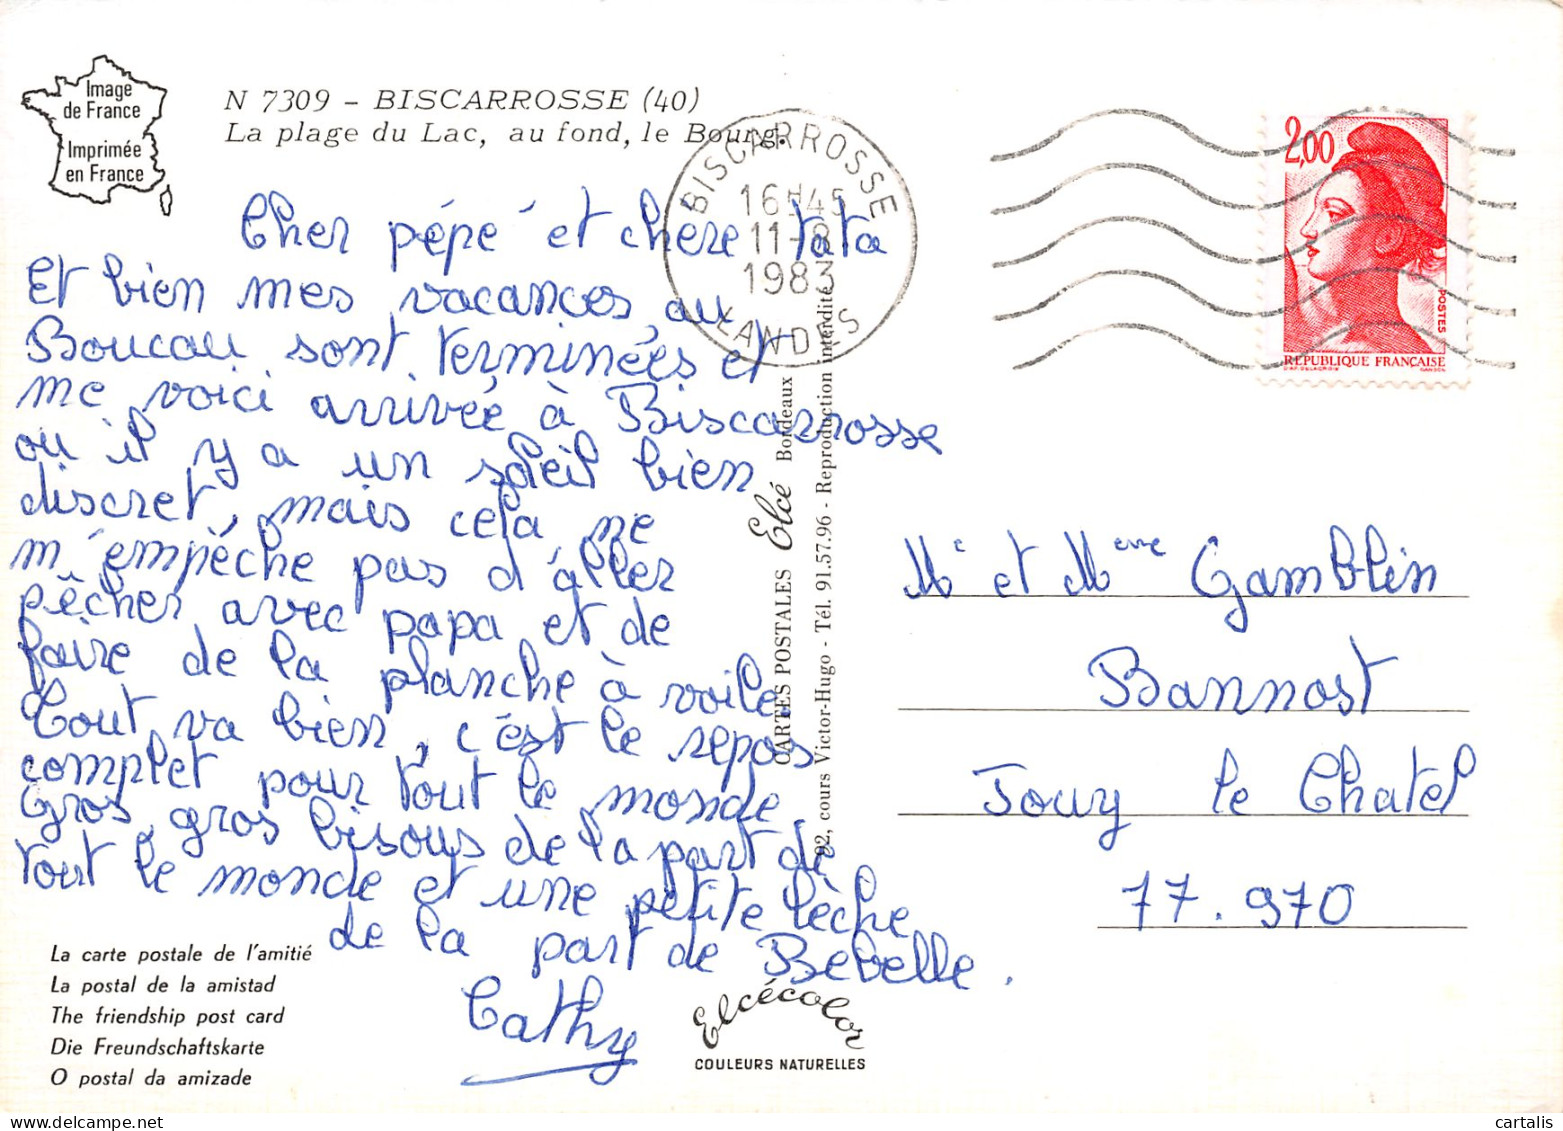 Image
de France
Imprimée
en France
N 7309 - BISCARROSSE (40)
La plage du Lac, au fond, le Bourg.
BISCARROSSE
16H45
11-8
1983
LANDES
2,00
POSTES
REPUBLIQUE FRANÇAISE
Cher pépé et chere tata
Et bien mes vacances au
Boucau sont terminées et
me voici arrivée à Biscarrosse
ou il y a un soleil bien
discret, mais cela ne
m'empéche pas d'aller
pêcher avec papa et de
faire de la planche à voile.
Tout va bien, c'est le repos
complet pour tout le monde.
Gros, gros bisous de la part de
tout le monde et une petite lèche
de la part de Bebelle.
Cathy
CARTES POSTALES Elcé Bordeaux
92, cours Victor-Hugo - Tél. 91.57.96 - Reproduction interdite
Mr et Mme Gamblin
Bannost
Jouy le Chatel
77.970
La carte postale de l'amitié
La postal de la amistad
The friendship post card
Die Freundschaftskarte
O postal da amizade
Elcécolor
COULEURS NATURELLES
cartalis